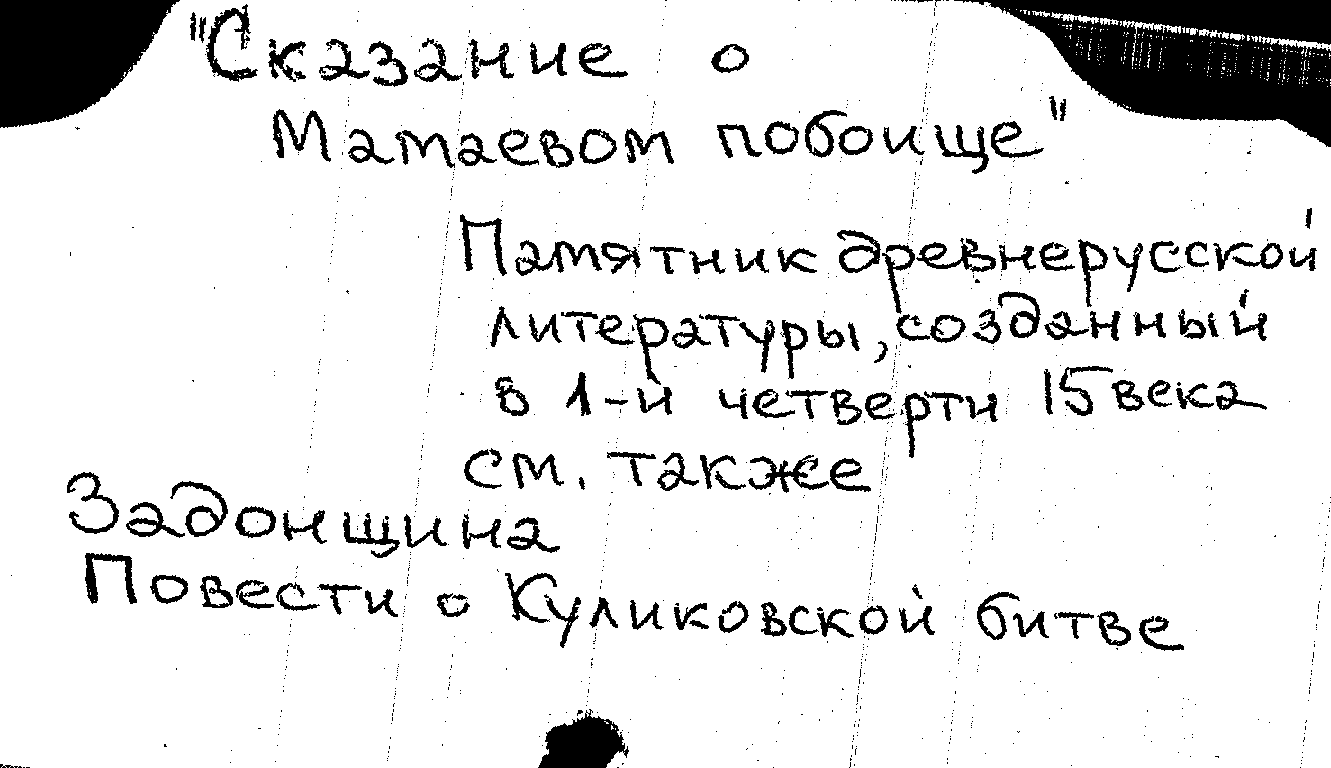 "Сказание о
Мамаевом побоище"
Памятник древнерусской
литературы, созданный
в 1-й четверти 15 века
см. также
Задонщина
Повести о Куликовской битве